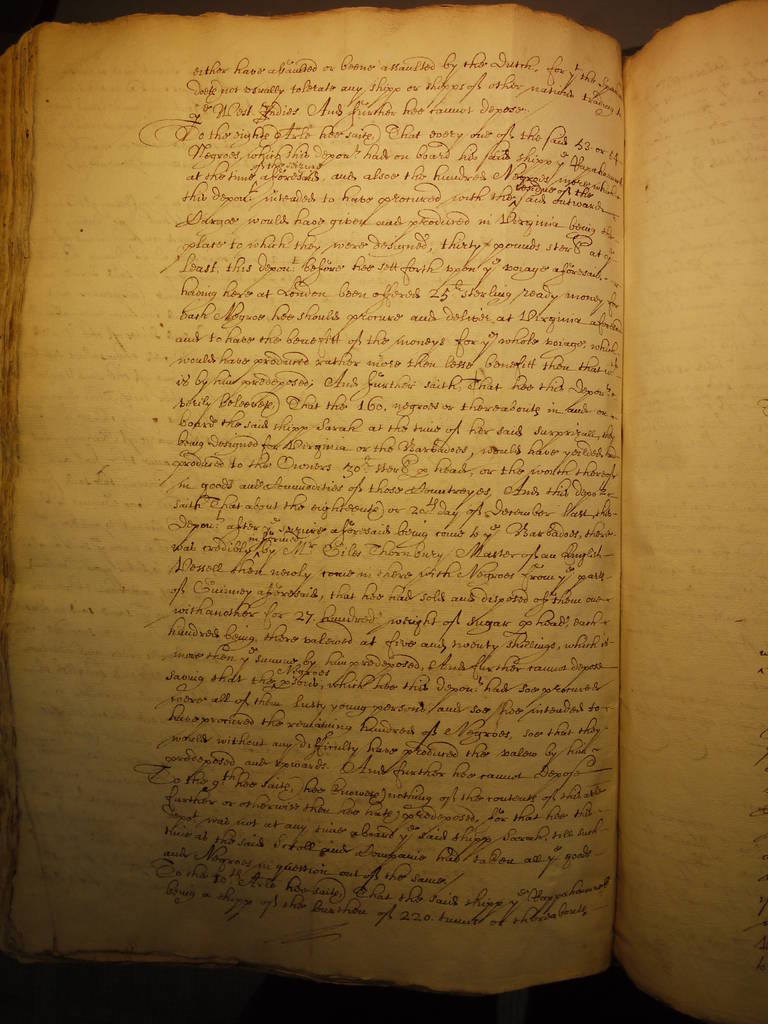 either have assaulted or beene assaulted by the Dutch, for yt the
doeth not usually tolerate any shipp or shipps of other nations trading to
ye West Indies And further hee cannot depose.
To the eighth Arle hee saith, That every one of the said 53 or 54
Negroes, which this depont had on board his said shipp ye Rappahannock
of the seizure
at the time aforesaid, and alsoe the hundred Negroes more which
residue of the
this depont intended to have procured with the said outward
Cargoe would have given and produced in Virginia being the
place to which they were designed, thirty pounds sterl at ye
least, this depont before hee sett forth upon ye voiage aforesaid
having here at London been offered 25l sterling ready money for
each Negroe hee should procure and deliver at Virginia aforesaid
and to have the benefitt of the moneys for ye whole voiage, which
would have produced rather more then lesse benefitt then that
is by him predeposed, And further saith That hee this Deponent
verily beleeveth That the 160. negroes or thereabouts in and on
board the said shipp Sarah at the time of her said surprizall, they
being designed for Virginia or the Barbadoes, would have yeilded and
produced to the Owners 30l sterl p head, or the worth thereof
in goods and Commodities of those Countreyes, And this deponent
saith That about the eighteenth or 20th day of December last, this
Depont after ye seizure aforesaid being come to ye Barbados, there
informed
was credibly by Mr Giles Thornbury Master of an English
Vessell then newly come in there with Negroes from ye parts
of Guinney aforesaid, that hee had sold and disposed of them one
with another for 27. hundred weight of sugar p head, each
hundred being there valewed at five and twenty shillings, which is
more then ye summe by him predeposed, And further cannot depose
Negroes
saving that the psons, which hee this deponent had soe procured
were all of them lusty young persons, and soe hee intended to
have procured the remaining hundred of Negroes, soe that they
would without any difficulty have produced the valew by him
predeposed and upwards. And further hee cannot Depose
To the 9th hee saith, hee knoweth nothing of the contents of this Arle
further or otherwise then hee hath predeposed, for that hee this
Depot was not at any time aboard ye said shipp Sarah, till such
time as the said Scroll and Companie had taken all ye goods
and Negroes in question out of the same.
To the 10th Arle hee saith, That the said shipp ye Rappahannock
being a shipp of the burthen of 220. tunns or thereabouts